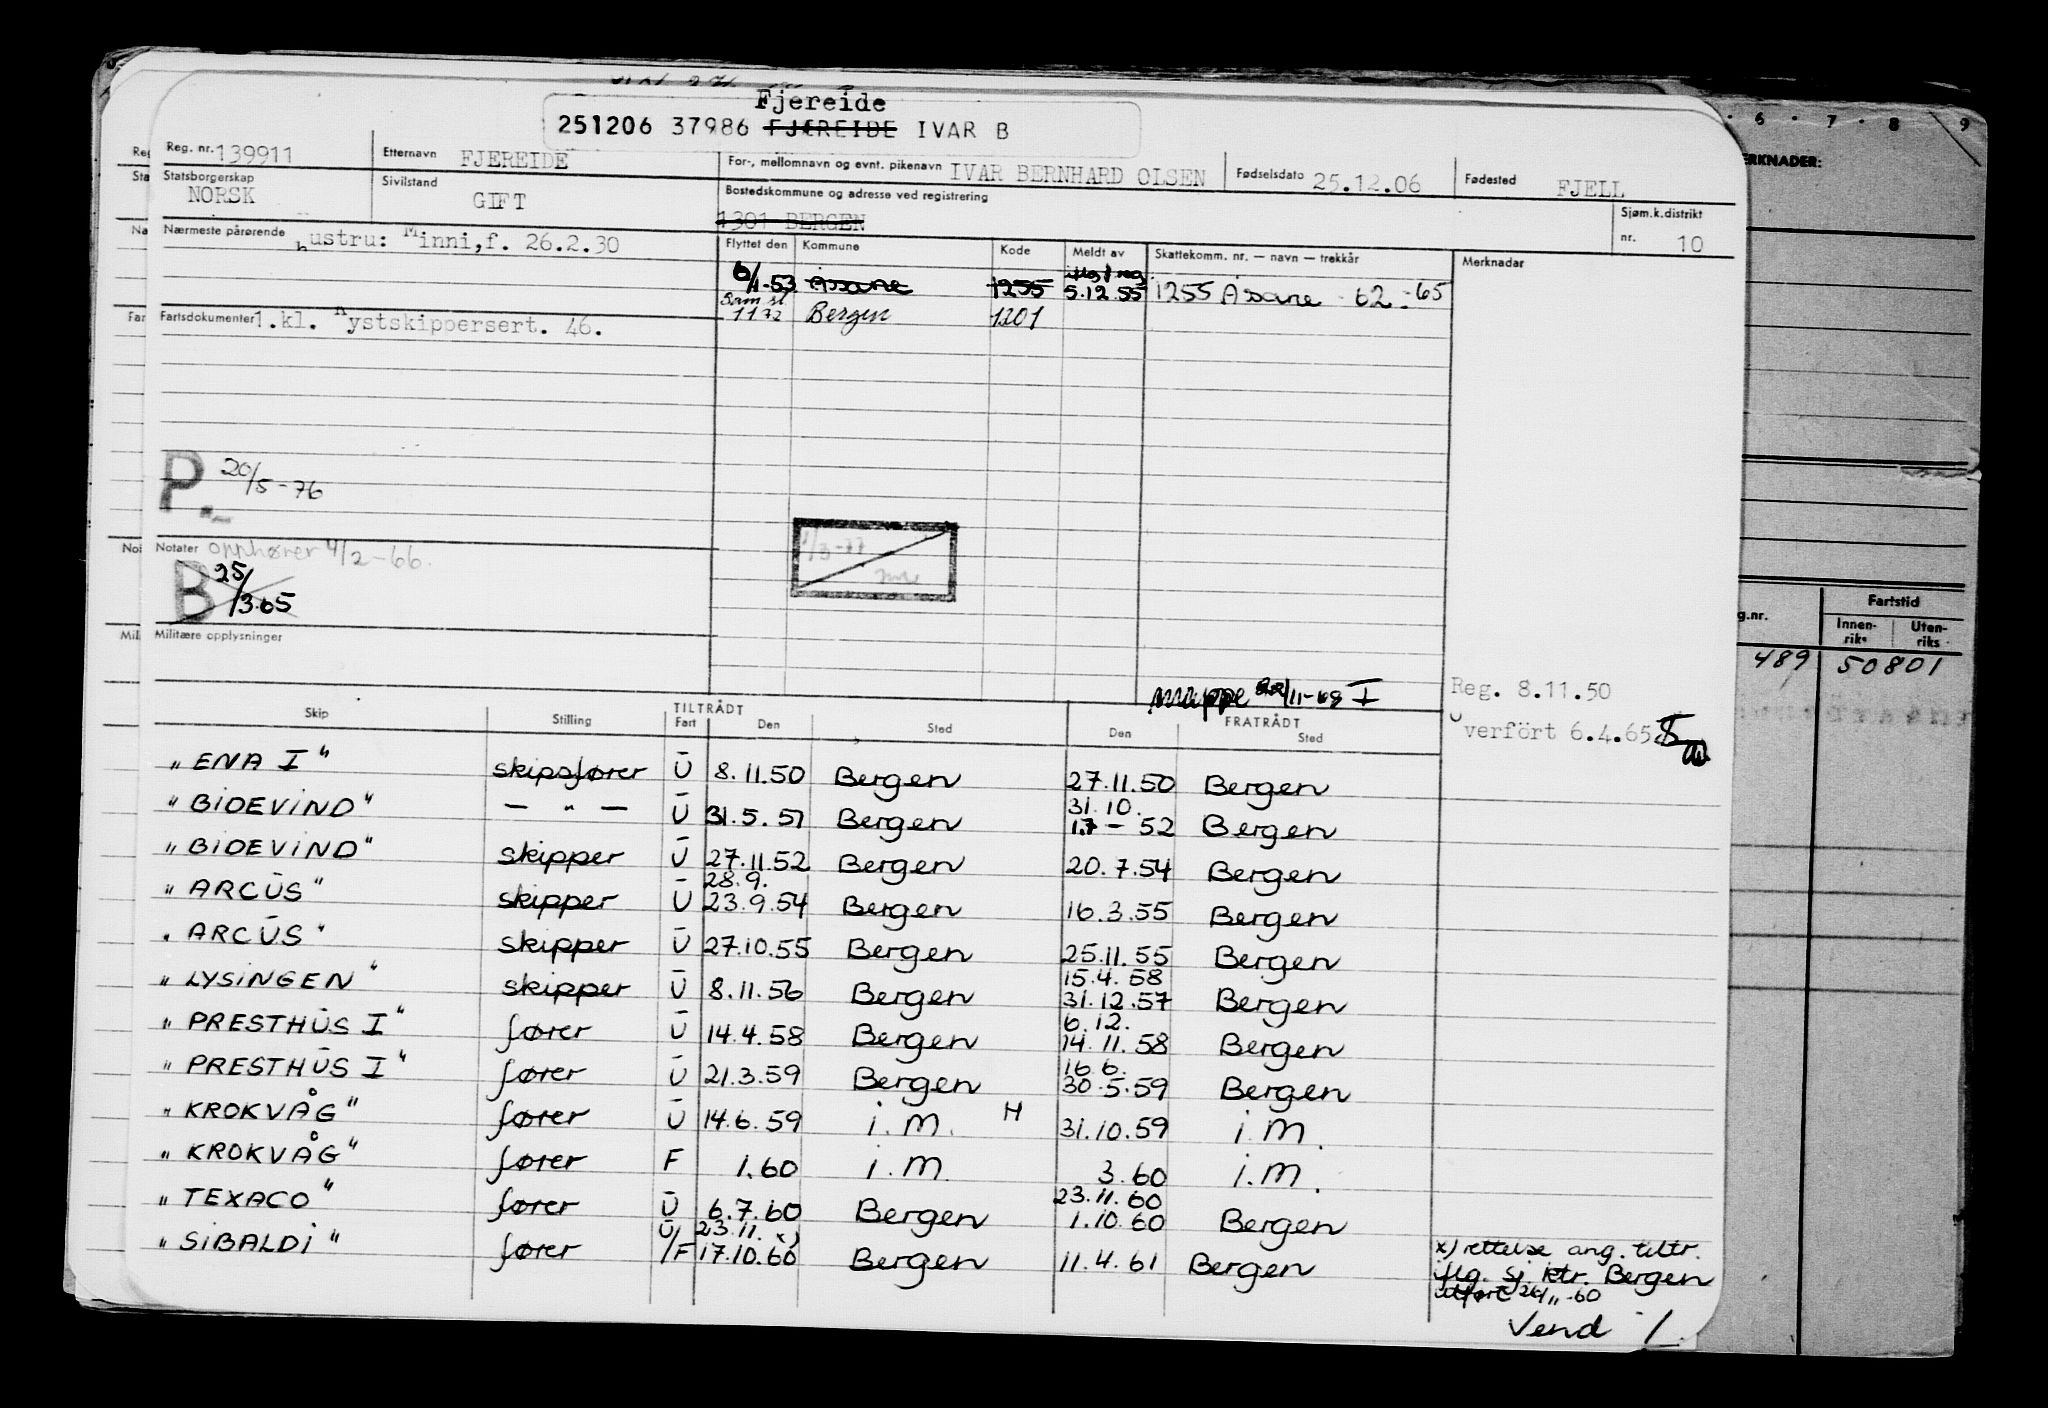 Fjereide
251206 37986 FJÆREIDE IVAR B
Reg. nr. 139911 Etternavn FJEREIDE For-, mellomnavn og evnt. pikenavn IVAR BERNHARD OLSEN Fødselsdato 25.12.06 Fødested FJELL
Statsborgerskap NORSK Sivilstand GIFT Bostedskommune og adresse ved registrering
1301 BERGEN
Sjøm.k.distrikt nr. 10
Nærmeste pårørende hustru: Minni,f. 26.2.30
Flyttet den Kommune Kode Meldt av Skattekomm. nr. — navn — trekkår Merknader
6/1-53 Åsane 1255 5.12.55 1255 Åsane - 62 - 65
Sam.st
1172 Bergen 1201
Fartsdokumenter 1.kl. Kystskippersert. 46.
P 20/5-76
Notater opphører 4/2-66.
B 25/3.65
1/3-77
Militære opplysninger
mappe 22/11-68 I
Reg. 8.11.50
Overfört 6.4.65
TILTRÅDT FRATRÅDT
Skip Stilling Fart Den Sted Den Sted
"ENA I" skipsfører U 8.11.50 Bergen 27.11.50 Bergen
31.10.
"BIDEVIND" — " — U 31.5.51 Bergen 1.7 - 52 Bergen
"BIDEVIND" skipper U 27.11.52 Bergen 20.7.54 Bergen
28.9.
"ARCUS" skipper U 23.9.54 Bergen 16.3.55 Bergen
"ARCUS" skipper U 27.10.55 Bergen 25.11.55 Bergen
15.4.58
"LYSINGEN" skipper U 8.11.56 Bergen 31.12.57 Bergen
6.12.
"PRESTHUS I" fører U 14.4.58 Bergen 14.11.58 Bergen
16.6.
"PRESTHUS I" fører U 21.3.59 Bergen 30.5.59 Bergen
"KROKVÅG" fører U 14.6.59 i.M. H 31.10.59 i.M.
"KROKVÅG" fører F 1.60 i.M. 3.60 i.M.
23.11.60
"TEXACO" fører U 6.7.60 Bergen 1.10.60 Bergen
23.11. x)
"SIBALDI" fører U/F 17.10.60 Bergen 11.4.61 Bergen
x) rettelse ang. tiltr.
iflg. Sj. ktr. Bergen
utført 26/11-60
Vend ./.
6 7 8 9
ERKNADER:
g.nr. Fartstid
Innen-riks Uten-riks
489 50801